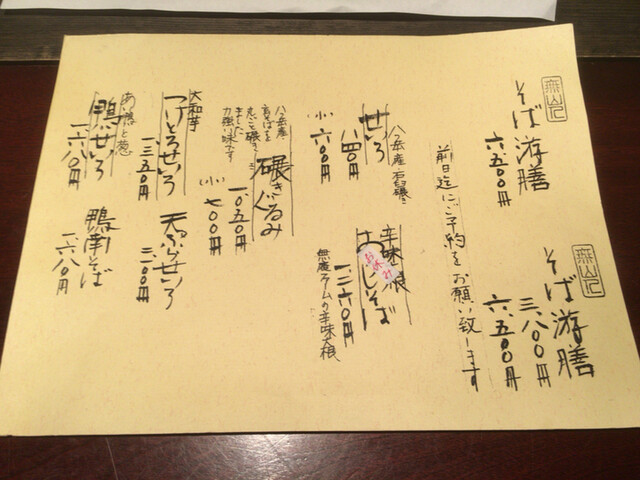 そば游膳
六、五〇〇円
そば游膳
三、八〇〇円
六、五〇〇円
前日迄にご予約をお願い致します
八ヶ岳産 石臼碾き
せいろ
八四〇円
小 六〇〇円
辛味大根
おろしそば
お休み
一、二六〇円
辛味大根
八ヶ岳産
玄そばを
丸ごと碾き
ました
力強い味です
碾きぐるみ
一、〇五〇円
(小) 七〇〇円
大和芋
つけとろせいろ
一、三五〇円
天ぷらせいろ
二、一〇〇円
あい鴨と葱
鴨せいろ
一、六八〇円
鴨南そば
一、六八〇円